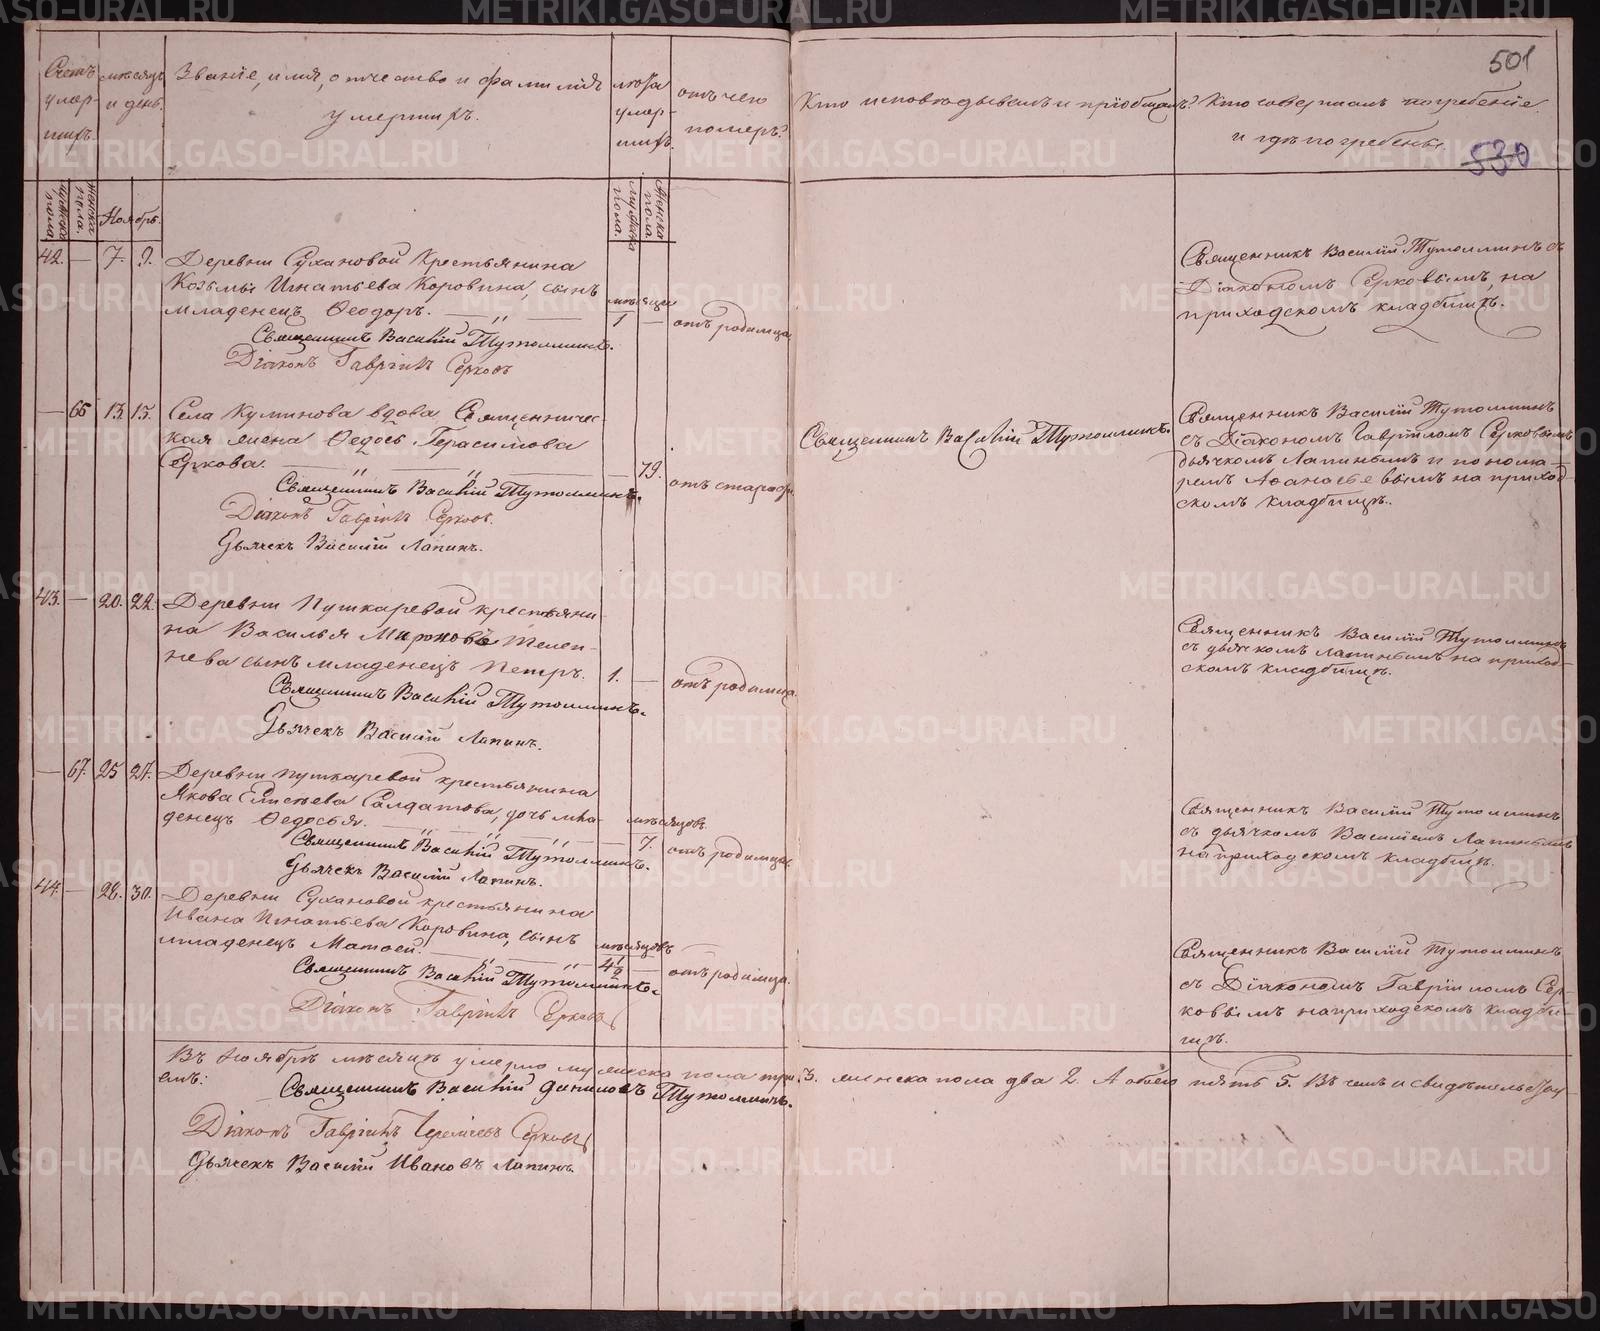 501
530
Счетъ умер-
шихъ.
мѣсяцъ
и день.
Званіе, имя, отчество и фамилія
умершихъ.
лѣта
умер-
шихъ.
отъ чего
померъ?
Кто исповѣдывалъ и пріобщалъ?
Кто совершалъ погребеніе
и гдѣ погребены.
мужеска
пола.
женска
пола.
Ноябрь.
мужеска
пола.
женска
пола.
42. — 7. 9. Деревни Сухановой Крестьянина
Козьмы Игнатьева Коровина, сынъ
младенецъ Ѳеодоръ. — „ —
мѣсяцъ
1 — отъ родимца.
Священникъ Василій Тутолминъ.
Діаконъ Гавріилъ Серковъ
Священникъ Василій Тутолминъ съ
Діакономъ Серковымъ, на
приходскомъ кладбищѣ.
— 66 13. 15. Села Куминова вдова Священничес-
кая жена Ѳедось Герасимова
Серкова. — „ — „ — 79.
отъ старости.
Священникъ Василій Тутолминъ.
Діаконъ Гавріилъ Серковъ.
Дьячекъ Василій Лапинъ.
Священникъ Василій Тутолминъ.
Священникъ Василій Тутолминъ
съ Діакономъ Гавріиломъ Серковымъ
дьячкомъ Лапинымъ и понома-
ремъ Аѳанасьевымъ на приход-
скомъ кладбищѣ.
43. — 20. 22. Деревни Пушкаревой крестьяни-
на Василья Миронова Телеп-
нева сынъ младенецъ Петръ. 1. — отъ родимца.
Священникъ Василій Тутолминъ.
Дьячекъ Василій Лапинъ.
Священникъ Василій Тутолминъ
съ дьячкомъ Лапинымъ на приход-
скомъ кладбищѣ.
— 67. 25 27. Деревни Пушкаревой крестьянина
Якова Елисѣева Салдатова, дочь мла-
денецъ Ѳедосья. — „ — „ —
мѣсяцовъ
7. отъ родимца.
Священникъ Василій Тутолминъ.
Дьячекъ Василій Лапинъ.
Священникъ Василій Тутолминъ
съ дьячкомъ Василіемъ Лапинымъ
на приходскомъ кладбищѣ.
44. — 28. 30. Деревни Сухановой крестьянина
Ивана Игнатьева Коровина, сынъ
младенецъ Матѳей.
мѣсяцовъ
4½ — отъ родимца.
Священникъ Василій Тутолминъ.
Діаконъ Гавріилъ Серковъ
Священникъ Василій Тутолминъ
съ Діакономъ Гавріиломъ Сер-
ковымъ на приходскомъ кладби-
щѣ.
Въ Ноябрѣ мѣсяцѣ умерло мужеска пола три 3. женска пола два 2. А обоего пять 5. Въ чемъ и свидѣтельству-
емъ:
Священникъ Василій Даниловъ Тутолминъ.
Діаконъ Гавріилъ Серковъ
Дьячекъ Василій Ивановъ Лапинъ.
METRIKI.GASO-URAL.RU